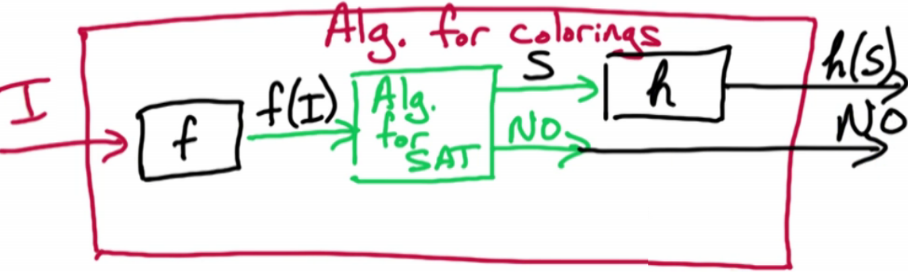 Alg. for colorings
I
f
f(I)
Alg.
for
SAT
S
NO
h
h(S)
NO